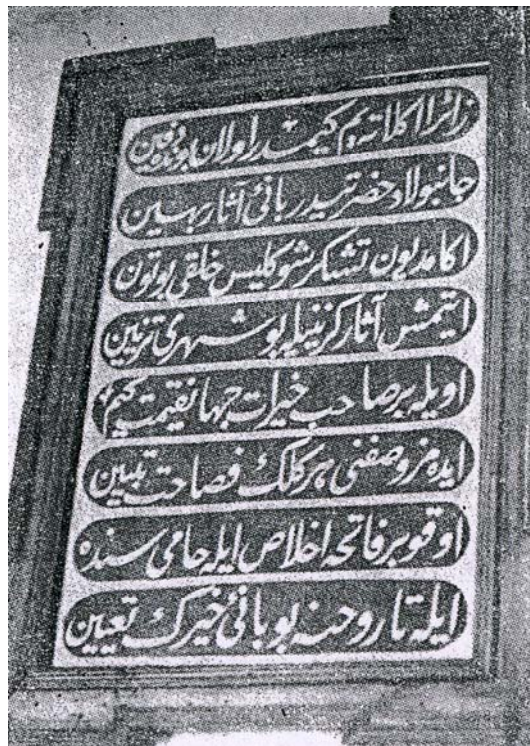 زائرا اكلاته يم كيمدر اولان بونده دفين
جانبولاد حضرتيدر بانئ آثار بهين
اكا مديون تشكر شو كليس خلقى بوتون
ايتمش آثار كزينيله بو شهرى تزيين
اويله بر صاحب خيرات جهانقيمت كيم
ايده مز وصفنى هر كلك فصاحت تبيين
اوقو بر فاتحه اخلاص ايله حامى سنده
ايله تا روحنه بو بانئ خيرك تعيين